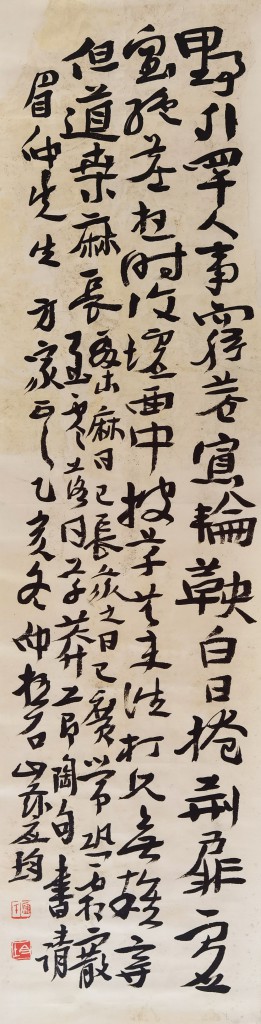 野外罕人事窮巷寡輪鞅白日掩荊扉虛
室絕塵想時復墟曲中披草共來往相見無雜言
但道桑麻長
桑麻日已長我土日已廣常恐霜霰
至零落同草莽 陶句書請
眉仲先生 方家正之乙亥冬仲